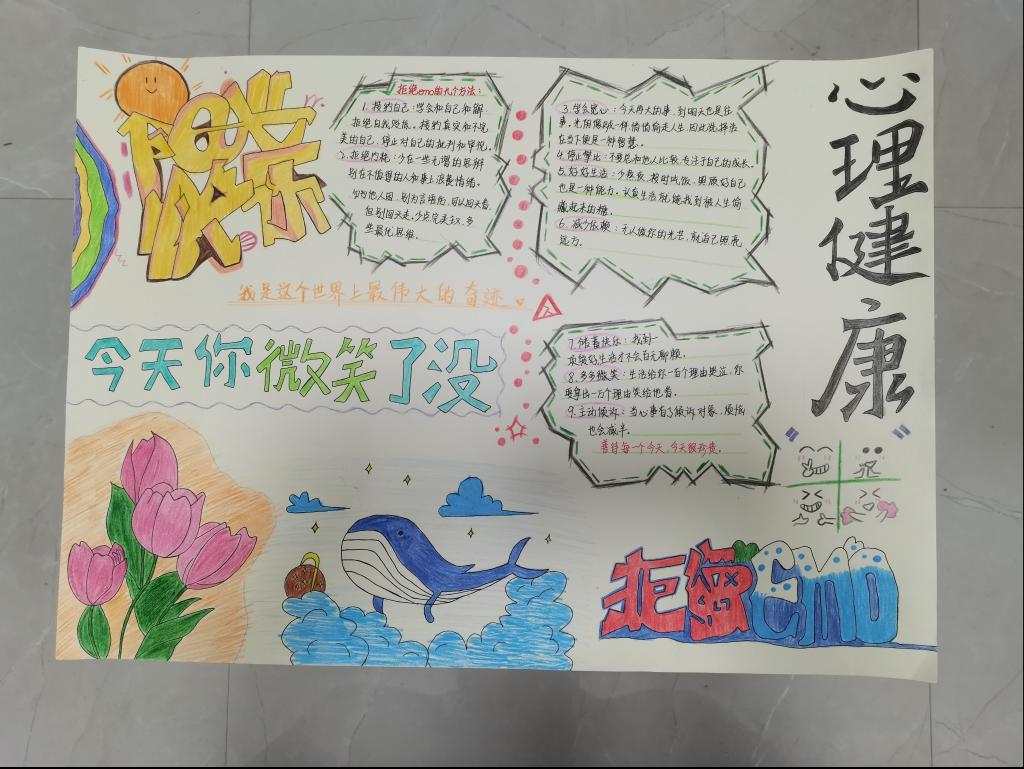 阳光
快乐
拒绝emo的九个方法：
1. 接纳自己：学会和自己和解.
拒绝自我贬低。接纳真实和不完
美的自己，停止对自己的批判和审视。
2. 拒绝内耗：少在一些无谓的思辨
别在不值得的人和事上浪费情绪。
勿为他人困，别为言语伤，可以回头看，
但别回头走，少点完美主义，多
些最优思维。
3. 学会宽心：今天再大的事，到明天也是往
事。光阴
在当下便是一种智慧。
4. 停止攀比：不要总和他人比较，专注于自己的成长。
5. 好好生活：少熬夜，按时吃饭，照顾好自己
也是一种能力。认真生活就能找到被人生偷
藏起来的糖。
6. 减少依赖：无人做你的光芒，就自己照亮
远方。
我是这个世界上最伟大的奇迹
今天你微笑了没
7. 储蓄快乐：找到一
项爱好生活才不会百无聊赖。
8. 多多微笑：生活给你一百个理由哭泣，你
要拿出一万个理由笑给他看。
9. 主动倾诉：当心事有了倾诉对象，烦恼
也会减半。
善待每一个今天，今天很珍贵。
心理健康
拒绝emo